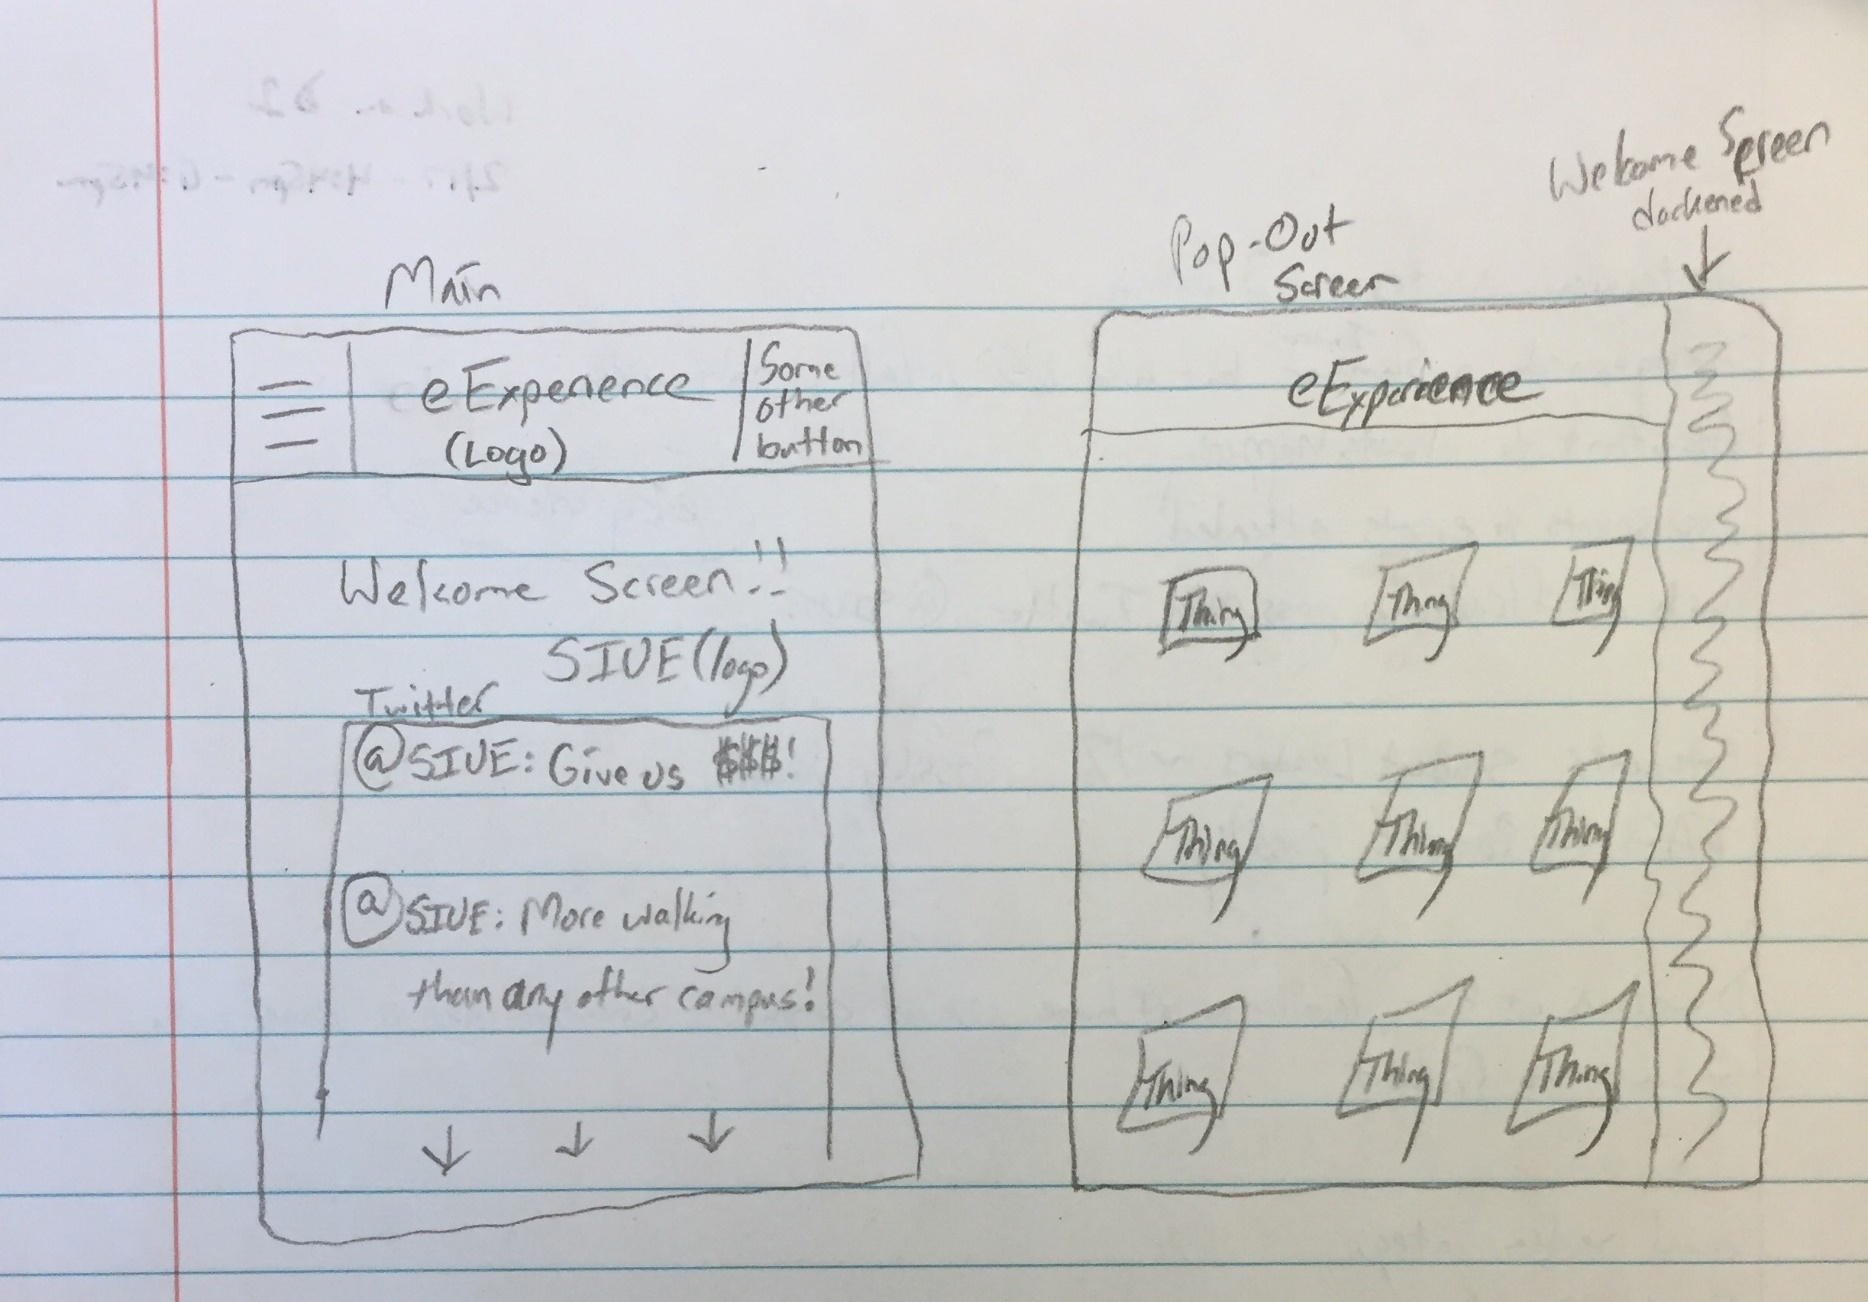 Main
eExperience
(Logo)
Some
other
button
Welcome Screen!!
SIUE (logo)
Twitter
@SIUE: Give us $$$!
@SIUE: More walking
than any other campus!
Pop-Out
Screen
Welcome Screen
darkened
eExperience
Thing Thing Thing
Thing Thing Thing
Thing Thing Thing